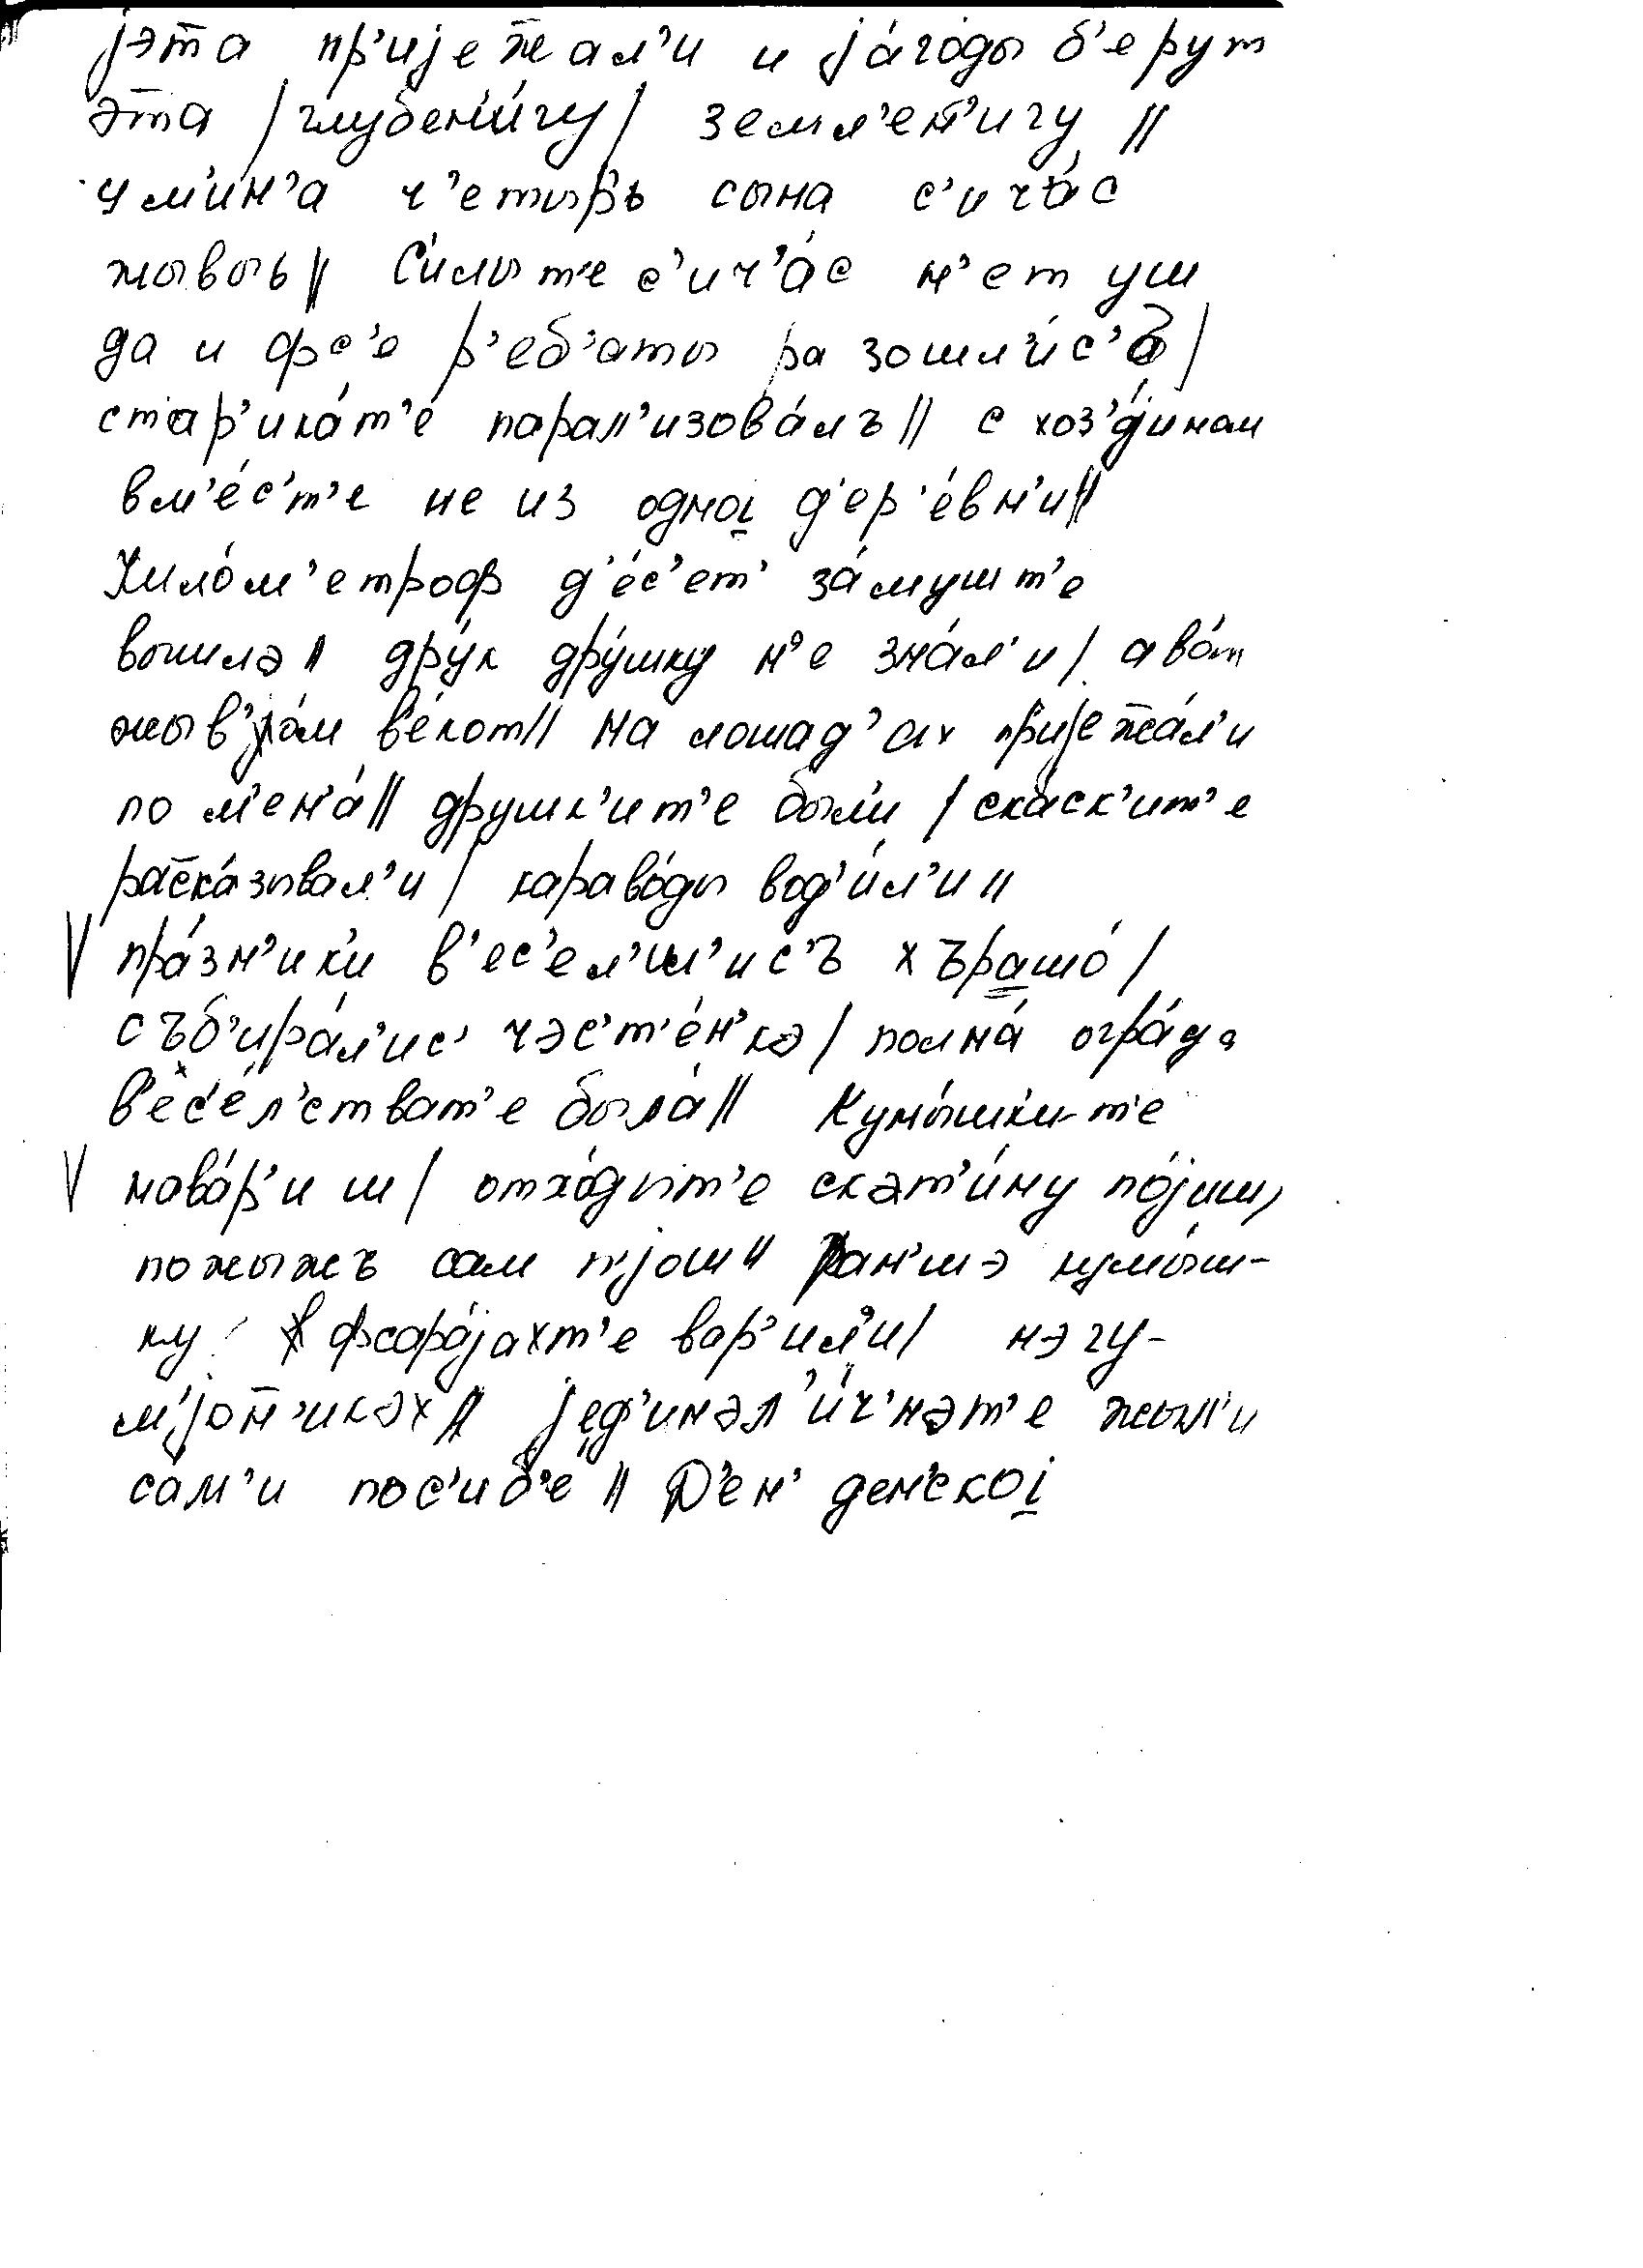 јэ̄та пр'ијеж̄ал'и и ја́го́ды б'ерут
э̄та / глубен'и́гу / земл'ен'игу //
ум'ин'а ч'етыр'ь сына с'ича́с
жывыь // С'илыт'е с'ич'а́с н'ет уш
да и фс'е р'еб'аты разошл'и́с'ь /
стар'ика́т'е парал'изова́лъ // с хоз'а́јинам
вм'е́с'т'е не из одној д'ер'е́вн'и //
Кило́м'етроф д'е́с'ет' за́мушт'е
вышлэ // дру́к дру́шку н'е зна́л'и / а во́т
жыв'јо́м в'е́кот // На лошад'ах пр'ијеж̄а́л'и
по м'ен'а́ // друшк'ит'е был'и / ска́ск'ит'е
рас̄ка́зывал'и / караво́ды вод'и́л'и //
V пра́зн'ик'и в'ес'ел'ил'ис'ъ хърашо́ /
съб'ира́л'ис' чэс'т'е́н'кэ / полна́ огра́да
в'ес'е́л'стват'е была́ // Кумы́шк'ит'е
V нава́р'иш / отхо́дыт'е скэт'и́ну по́јиш,
пожыжъ сам п'још // Ран'шэ кумы́ш-
ку фсара́јахт'е вар'ил'и / нэ гу-
м'јо́н'икэх // јед'инэл'и́ч'нэт'е жыл'и
са́м'и пос'иб'е // Д'ен' ден'ској